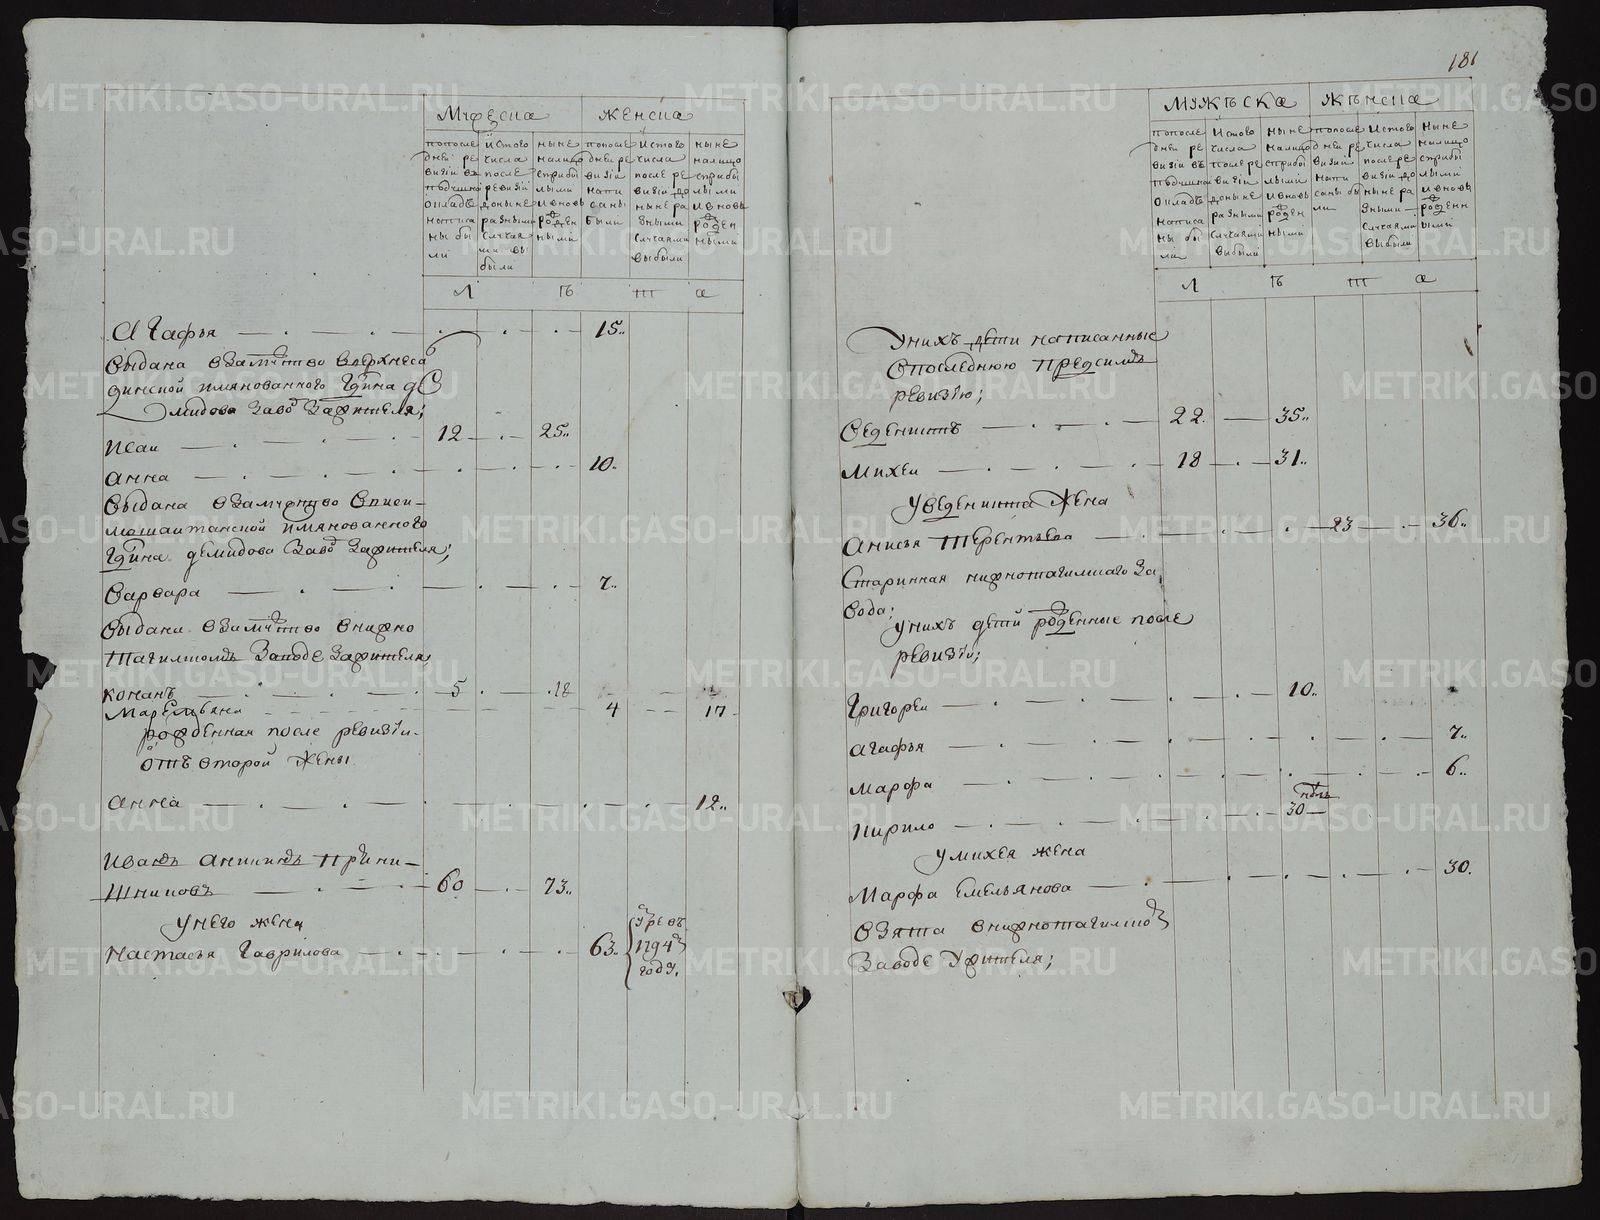 181
Мужеска Женска
попосле
дней ре
визiи въ
подушно
окладъ
написа
ны бы
ли
Истого
числа
после
ревизiи
доныне
разными
случая
ми вы
были
ныне
налицо
сприбы
лыми
ивновь
рожден
ными
попосле
дней ре
визiи
напи
саны
были
Истого
числа
после ре
визiи до
ныне ра
зными
случаями
выбыли
ныне
налицо
сприбы
лыми
ивновь
рожден
ными
Л ѣ т а
Агафья 15..
Выдана взамужство
динской имянованного Гдина де
мидова заводъ Зажителя;
Исаи 12 25..
Анна 10.
Выдана взамужство Вписи-
мошаитанской имянованного
Гдина демидова Заво Зажителя;
Варвара 7..
Выдана взамужство внижно
тагилскомъ Заводе Зажителя,
романъ 5 18
Маремьяна 4 17
рожденная после ревизiи.
отъ второй Жены
Анна 12..
Иванъ Аникинъ
60. 73..
Унего жена
Настасья Гаврилова 63. умре въ
1794
году.
Мужъска Жънска
попосле
дней ре
визiи въ
подушно
окладъ
написа
ны бы
ли
Истого
числа
после ре
визiи
доныне
разными
случаями
выбыли
ныне
налицо
сприбы
лыми
ивновь
рожден
ными
попосле
дней ре
визiи
напи
саны бы
ли
Истого
числа
после ре
визiи до
ныне ра
зными
случаями
выбыли
ныне
налицо
сприбы
лыми
ивновь
рожденн
ыми
Л ѣ т а
Унихъ дети написанные
Впоследнюю предсимъ
ревизiю;
Ведениктъ 22. 35..
Михеи 18 31..
Уведеникта Жена
Анисья Терентьева 23 36..
Старинная нижнотагилскаго за
вода;
Унихъ детй рожденные после
ревизiи;
Григореи 10..
Агафья 7..
Марфа 6..
Кирило 30
Умихея жена
Марфа Емельянова 30.
Взята внижнотагилско
Заводе Ужителя;
METRIKI.GASO-URAL.RU